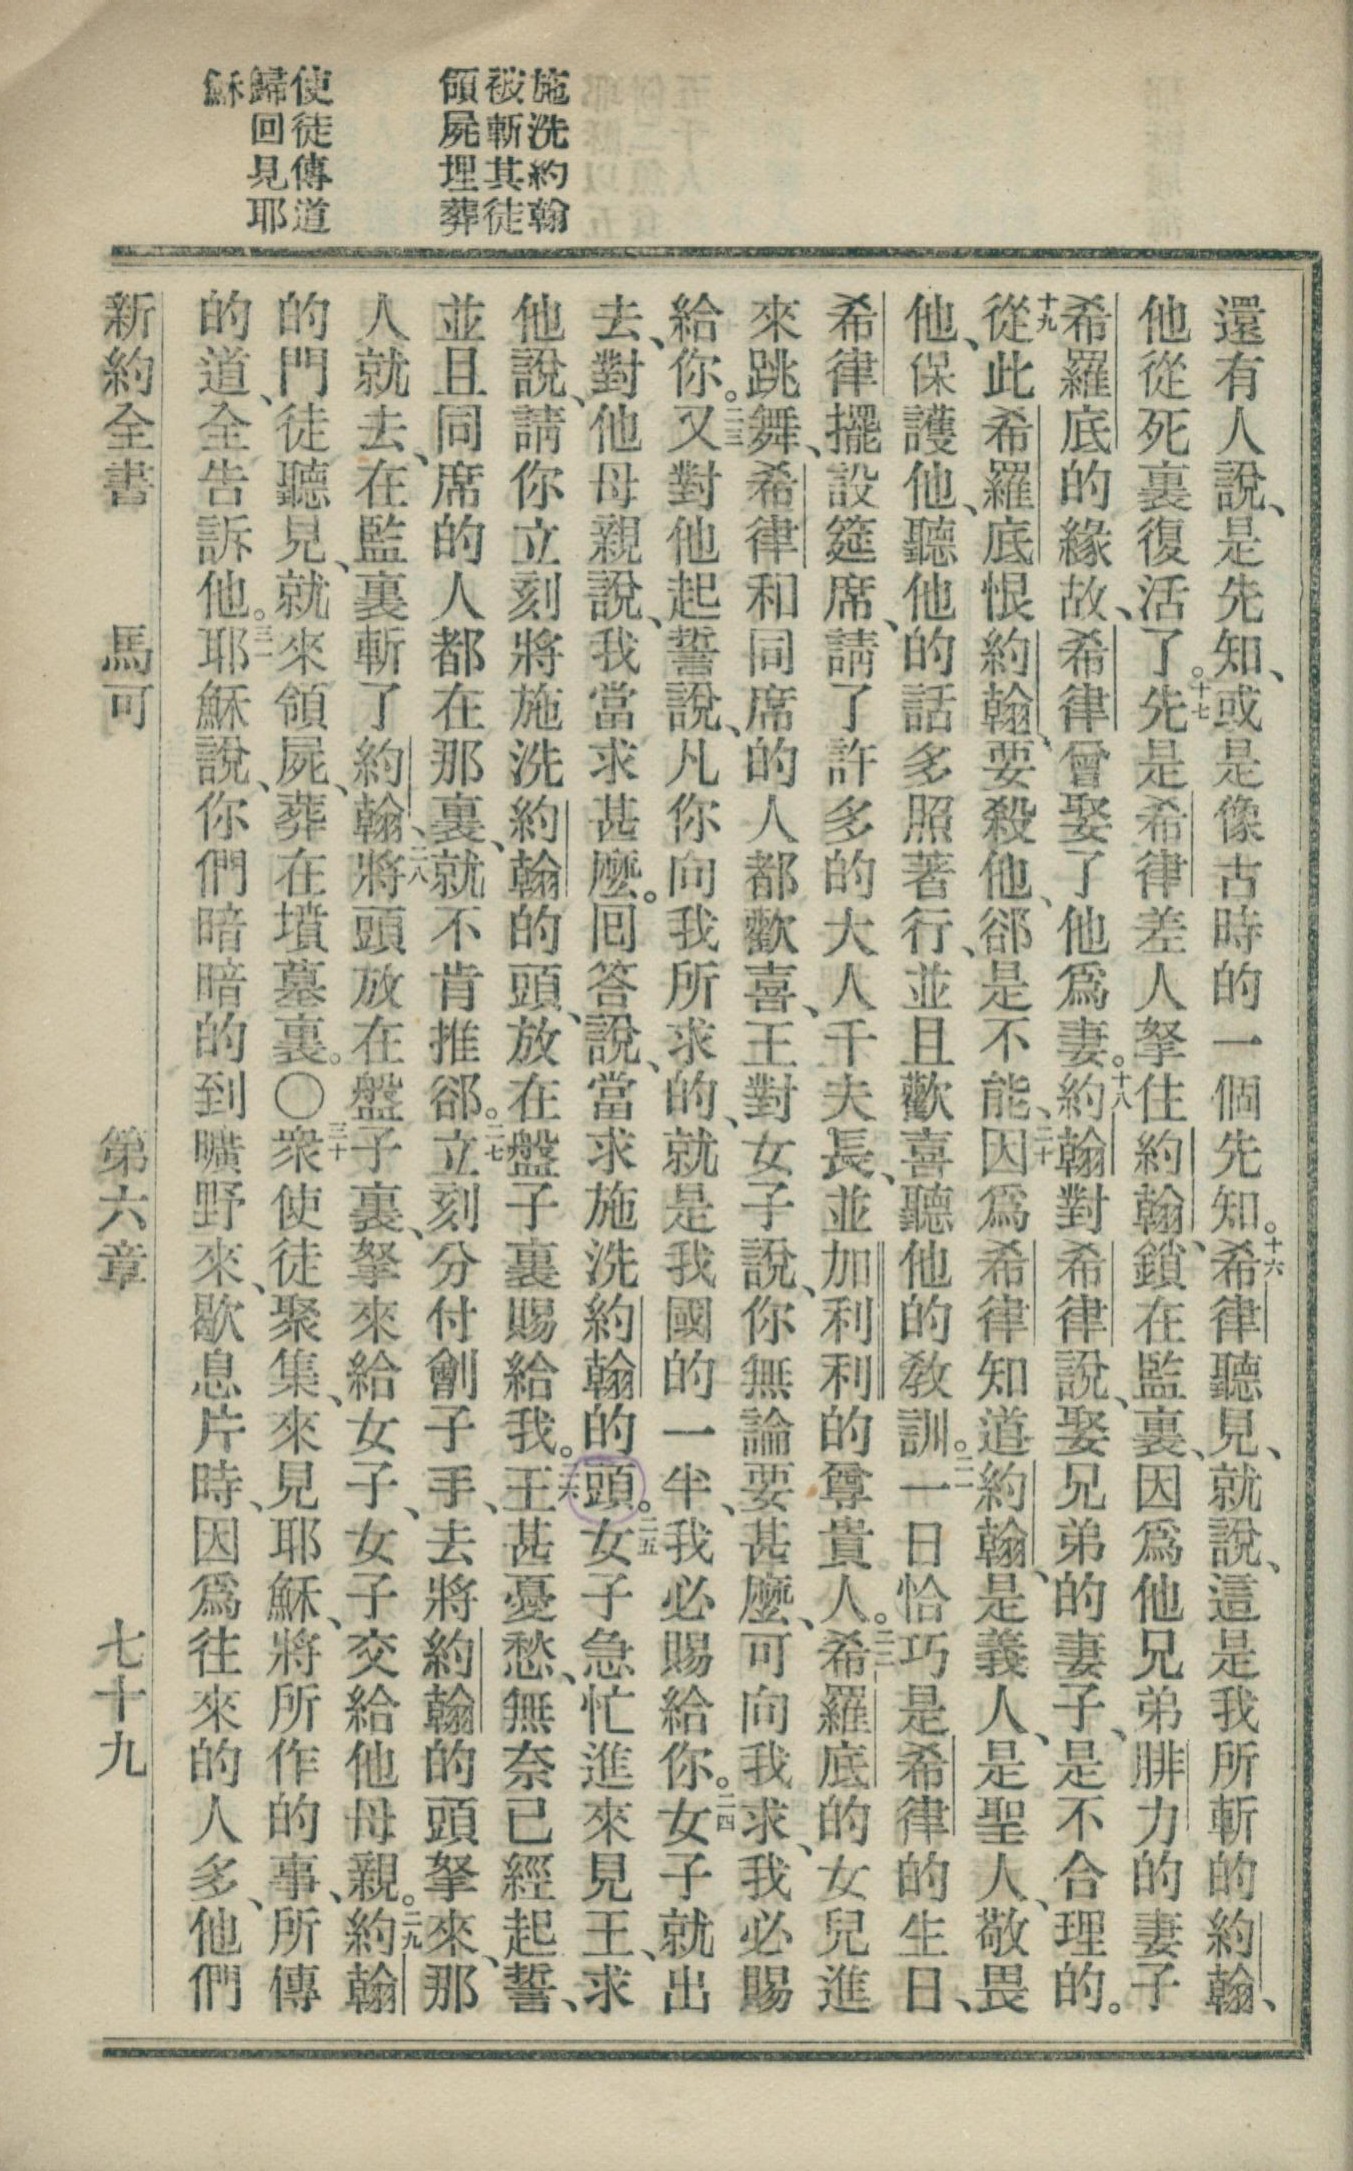 施洗約翰
被斬其徒
領屍埋葬
使徒傳道
歸回見耶
穌
還有人說、是先知、或是像古時的一個先知。十六希律聽見、就說、這是我所斬的約翰、
他從死裏復活了。十七先是希律差人拏住約翰、鎖在監裏、因爲他兄弟腓力的妻子
希羅底的緣故、希律曾娶了他爲妻。十八約翰對希律說、娶兄弟的妻子、是不合理的。
十九從此希羅底恨約翰、要殺他、郤是不能、二十因爲希律知道約翰、是義人、是聖人、敬畏
他、保護他、聽他的話多照著行、並且歡喜聽他的教訓。二一一日恰巧是希律的生日、
希律擺設筵席、請了許多的大人千夫長、並加利利的尊貴人。二二希羅底的女兒進
來跳舞、希律和同席的人都歡喜、王對女子說、你無論要甚麼、可向我求、我必賜
給你。二三又對他起誓說、凡你向我所求的、就是我國的一半、我必賜給你。二四女子就出
去、對他母親說、我當求甚麼。回答說、當求施洗約翰的頭。二五女子急忙進來見王、求
他說、請你立刻將施洗約翰的頭、放在盤子裏賜給我。二六王甚憂愁、無奈已經起誓、
並且同席的人都在那裏、就不肯推郤。二七立刻分付劊子手、去將約翰的頭拏來、那
人就去、在監裏斬了約翰、二八將頭放在盤子裏、拏來給女子、女子交給他母親。二九約翰
的門徒聽見、就來領屍、葬在墳墓裏。○三十衆使徒聚集、來見耶穌、將所作的事、所傳
的道、全告訴他。三一耶穌說、你們暗暗的到曠野來、歇息片時、因爲往來的人多、他們
新約全書　馬可　第六章　七十九